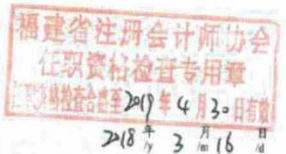 福建省注册会计师协会
任职资格检查专用章
任职资格检查合格至2019年4月30日有效
2018年3月16日
/y /m /d